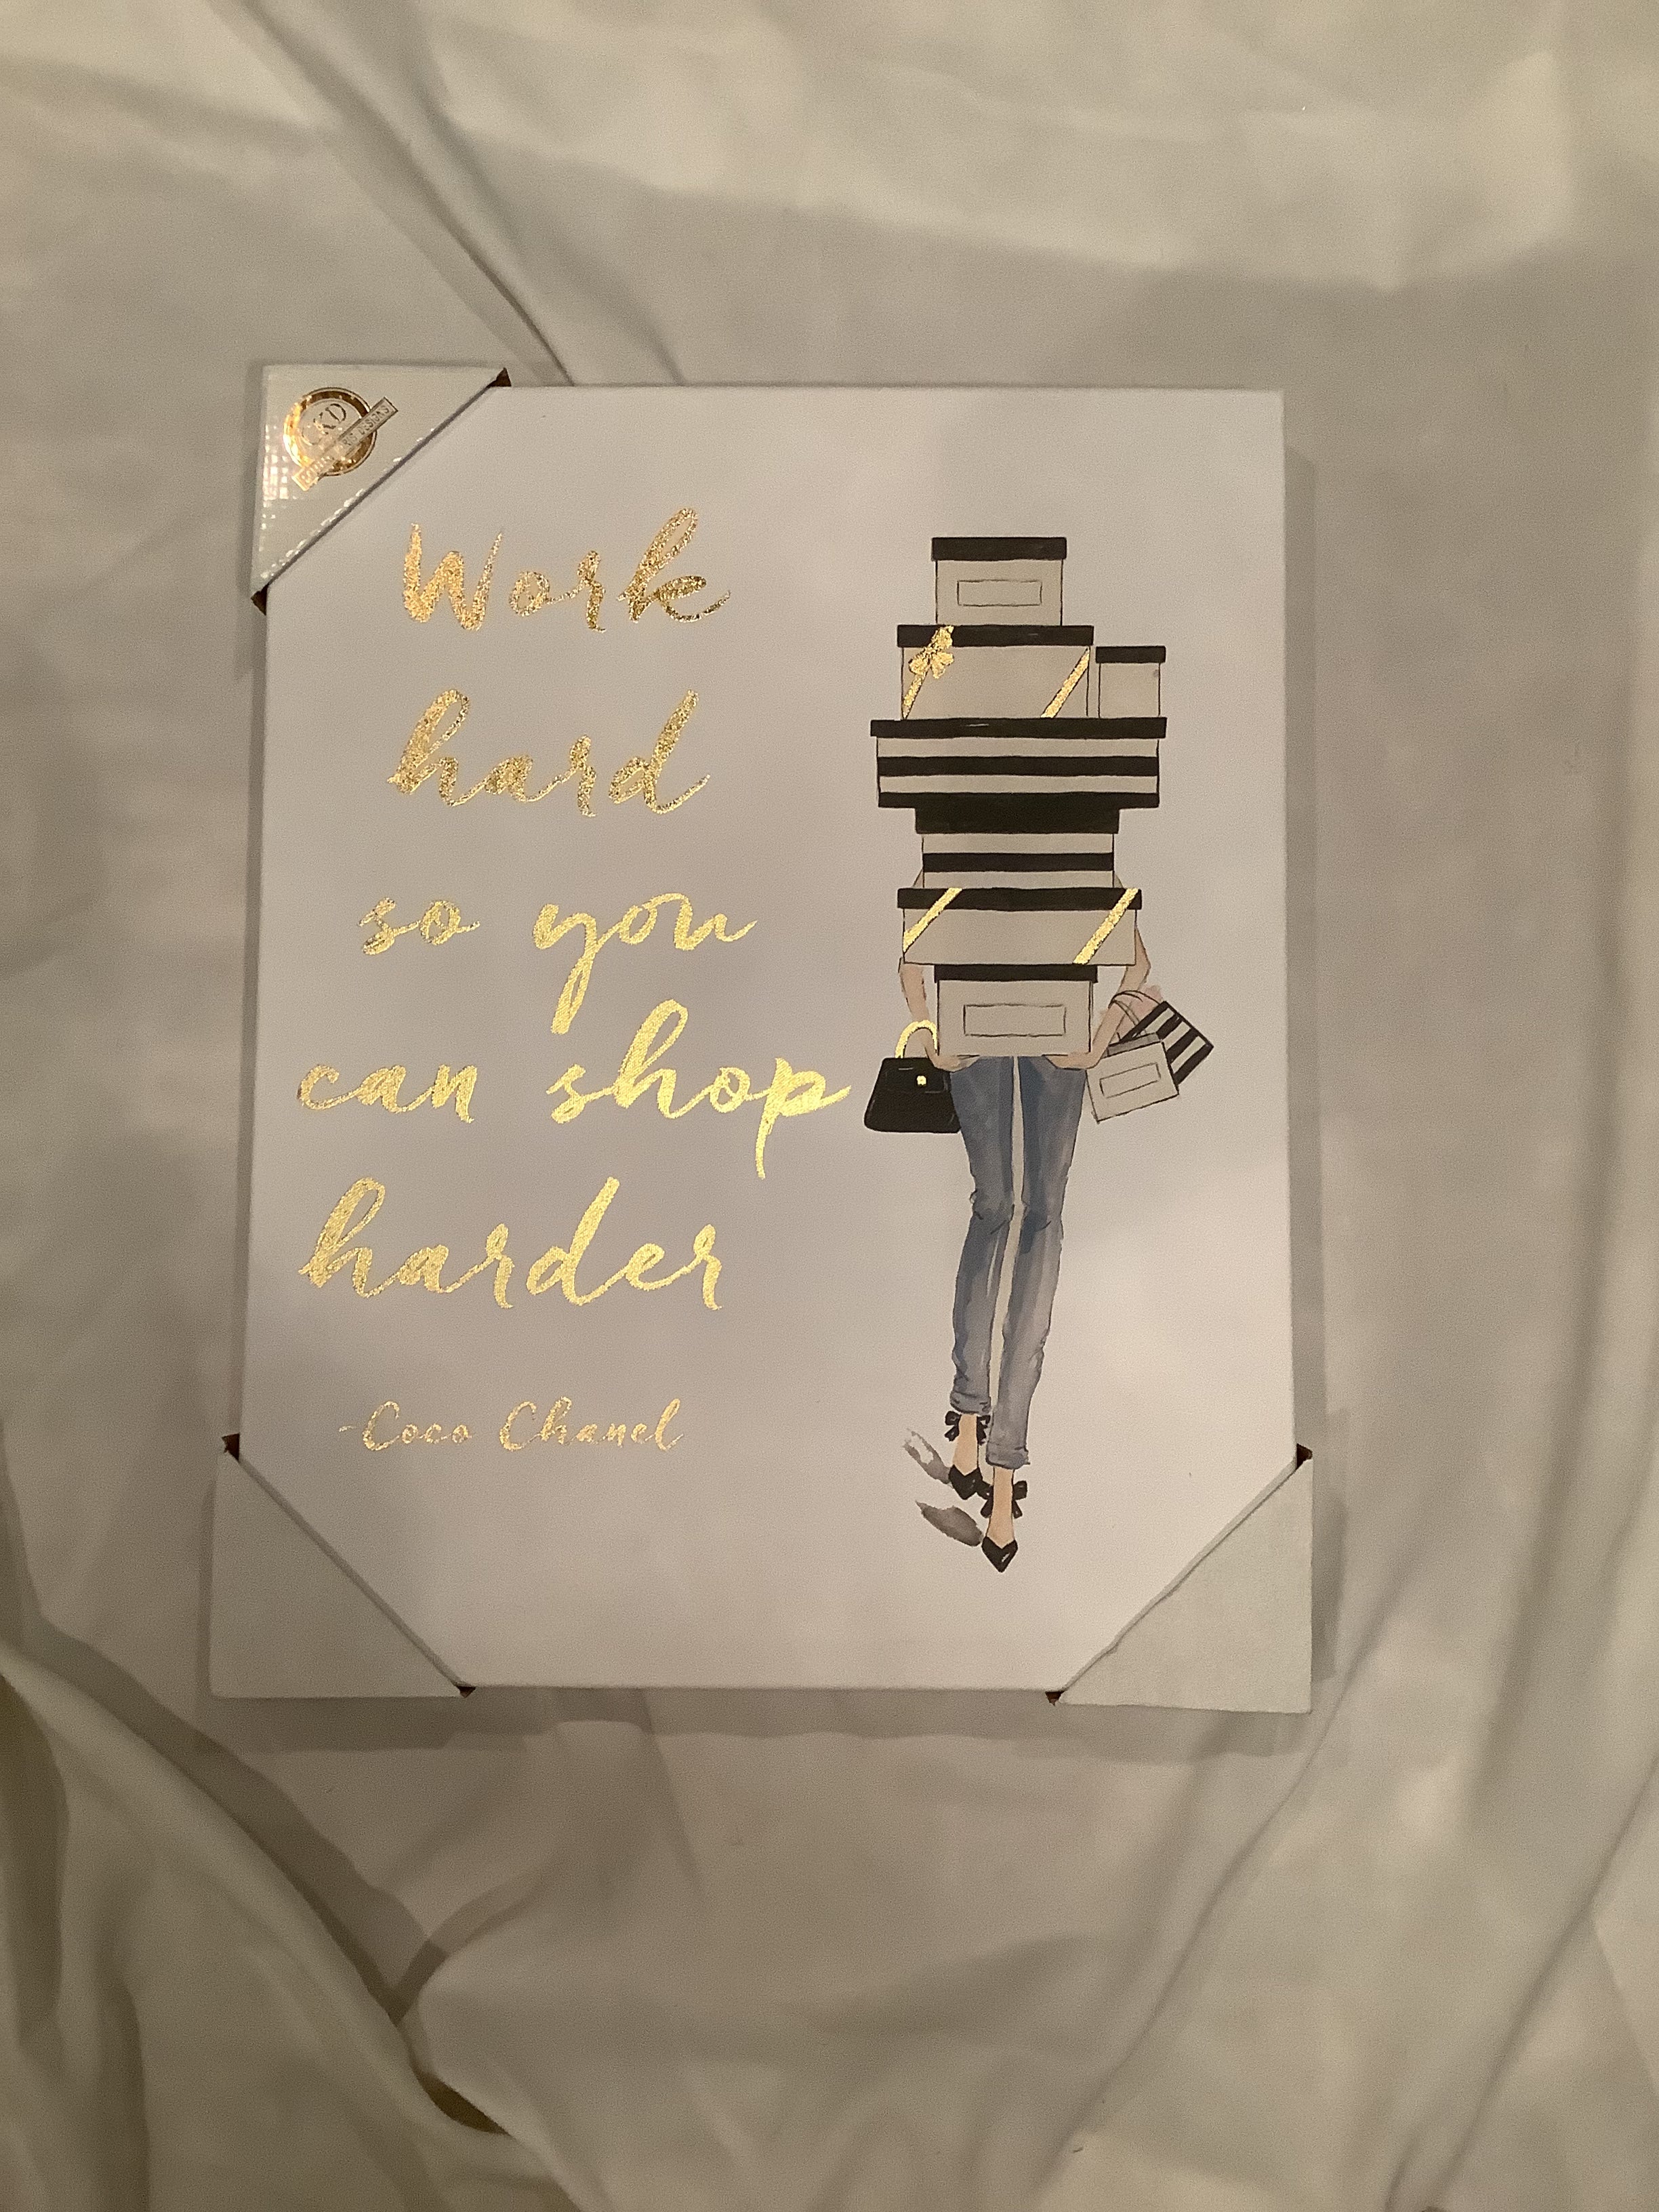 CKD
Work
hard
so you
can shop
harder
-Coco Chanel